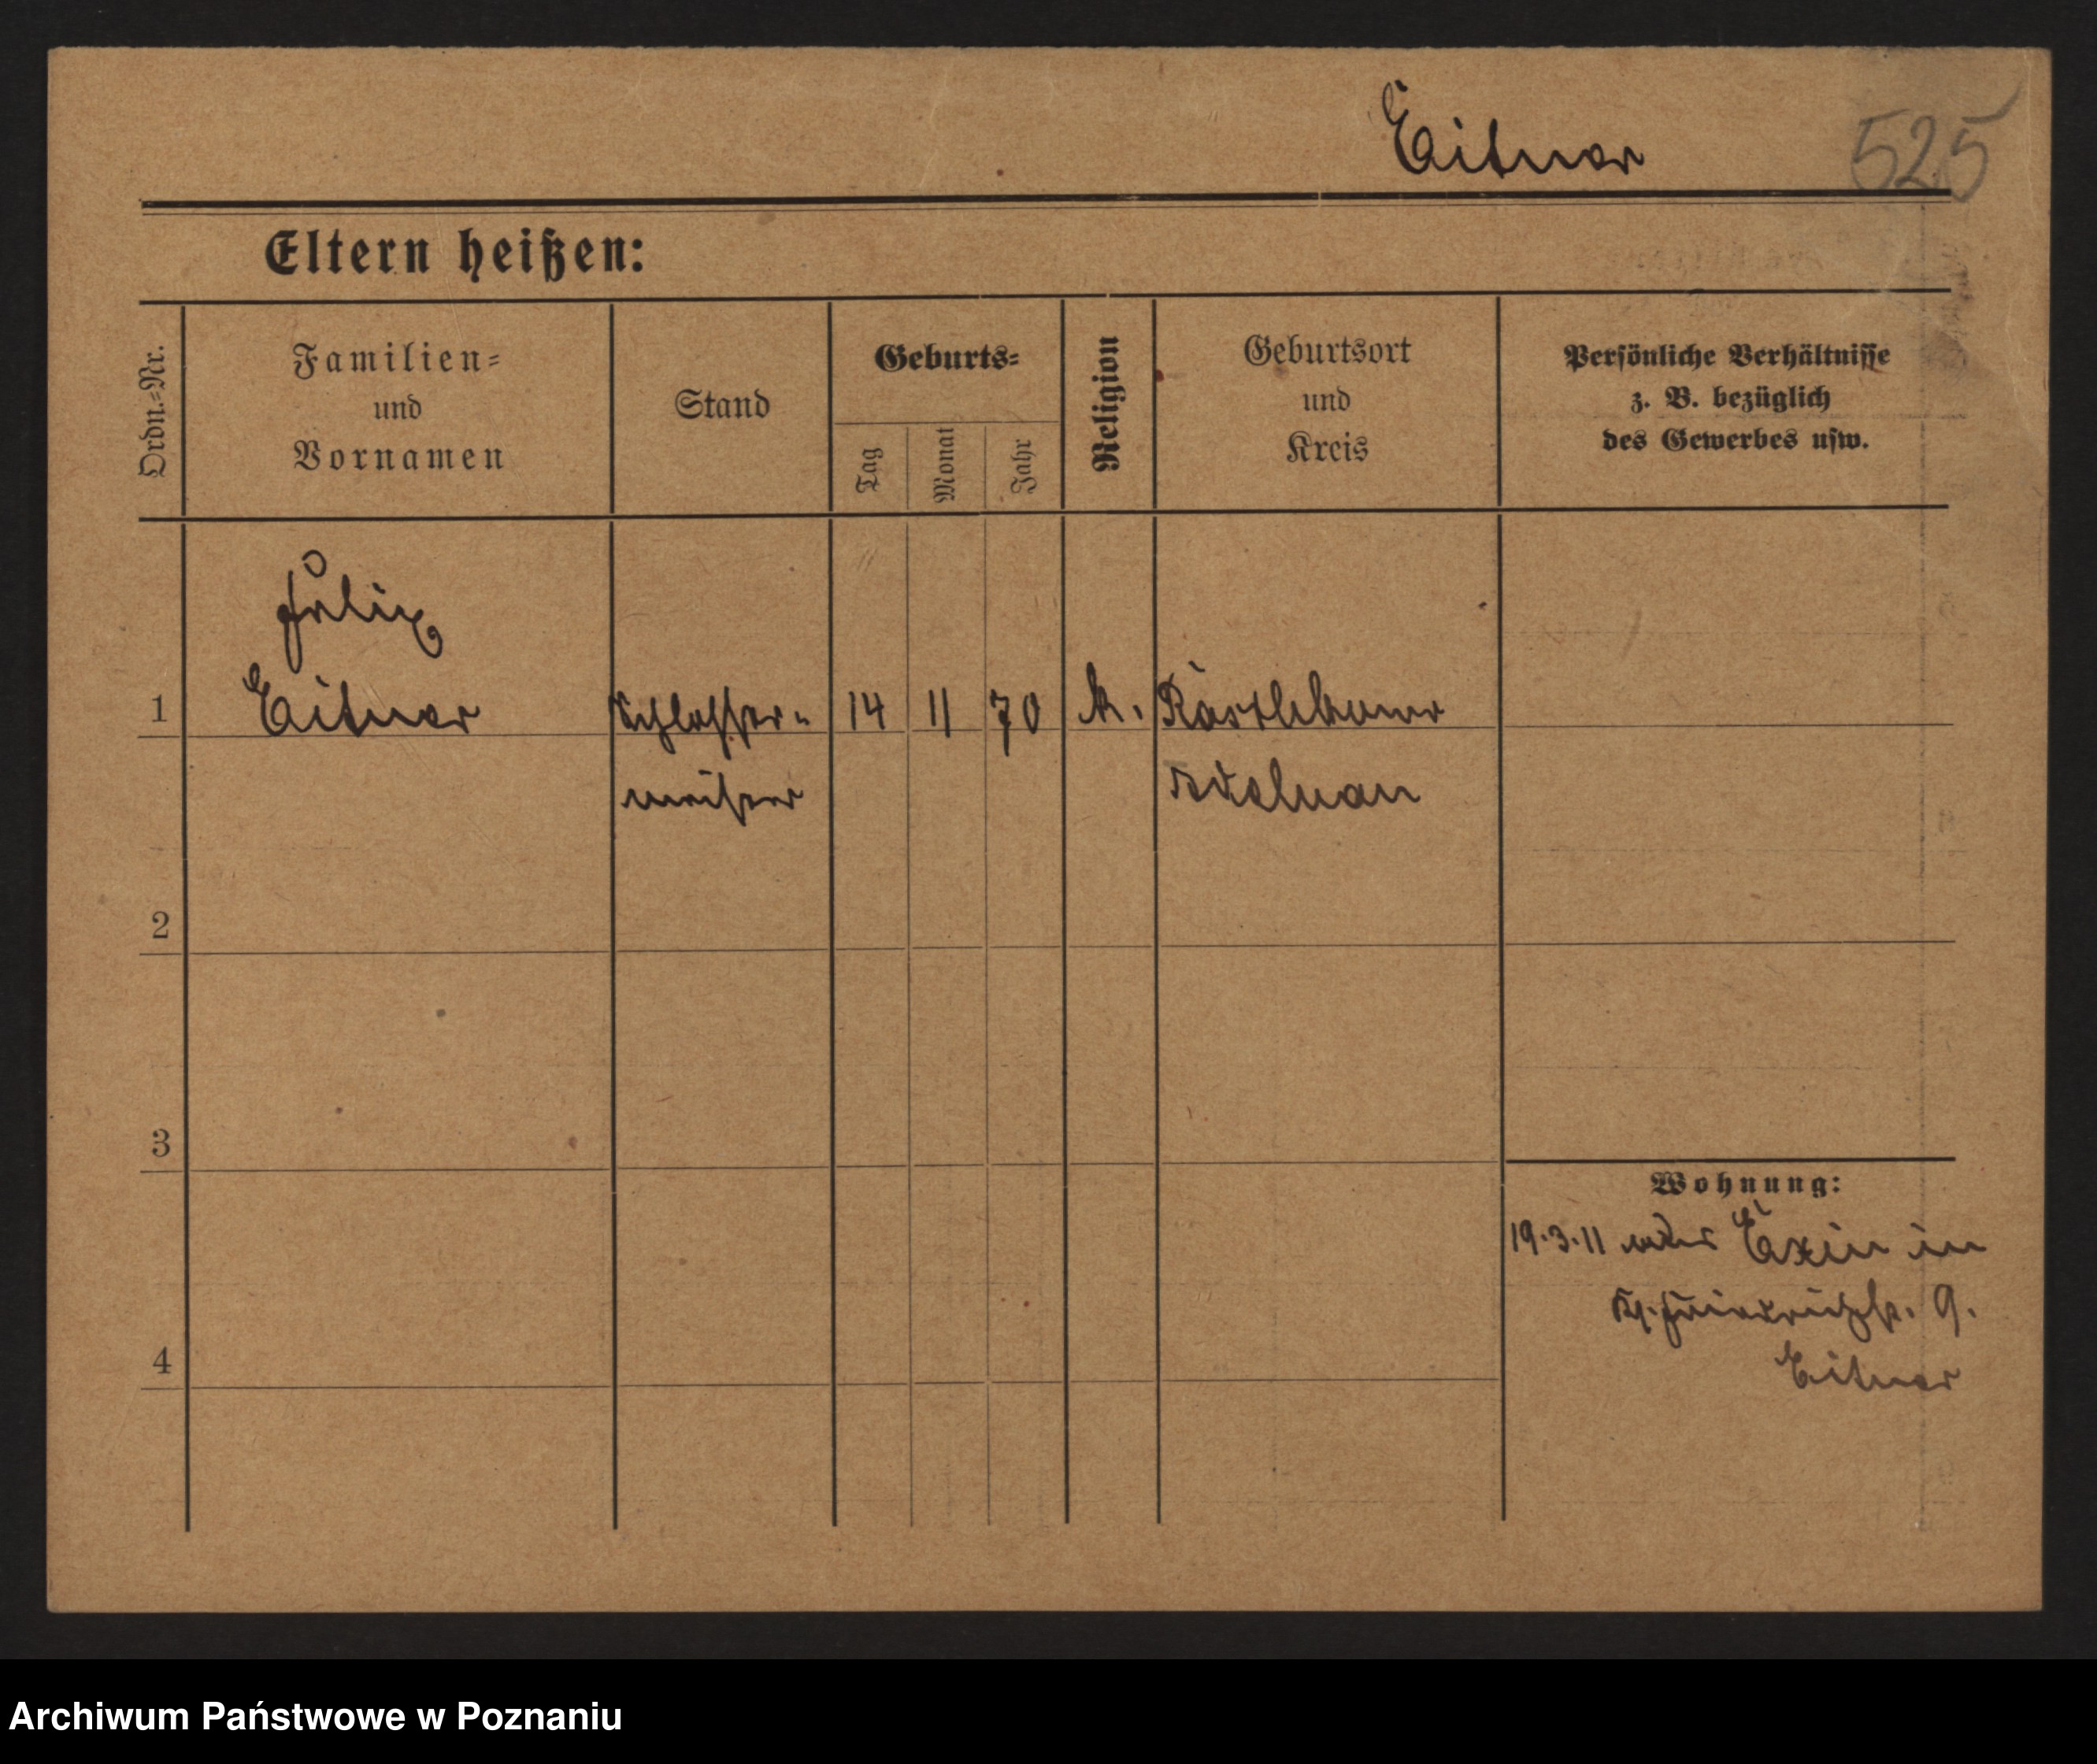 Eitner 525
Eltern heißen:
Ordn.-Nr.
Familien-
und
Vornamen
Stand
Geburts-
Tag
Monat
Jahr
Religion
Geburtsort
und
Kreis
Persönliche Verhältnisse
z. B. bezüglich
des Gewerbes usw.
Felix
1 Eitner Schlosser- 14 11 70 k.
meister Adelnau
2
3
4
Wohnung:
19.3.11 Exin in
Friedrichstr. 9.
Eitner
Archiwum Państwowe w Poznaniu